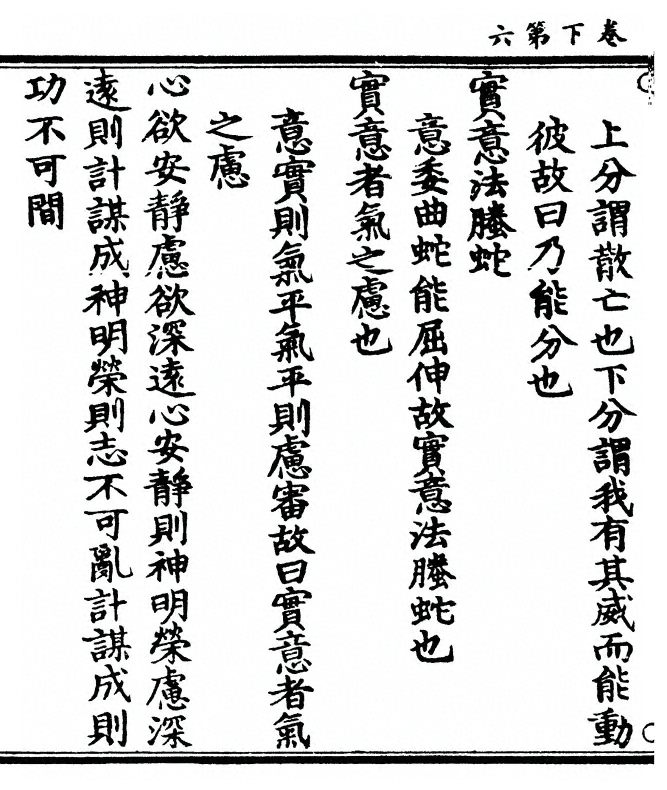 卷下第六
上分謂散亡也下分謂我有其威而能動
彼故曰乃能分也
實意法螣蛇
意委曲蛇能屈伸故實意法螣蛇也
實意者氣之慮也
意實則氣平氣平則慮審故曰實意者氣
之慮
心欲安靜慮欲深遠心安靜則神明榮慮深
遠則計謀成神明榮則志不可亂計謀成則
功不可間